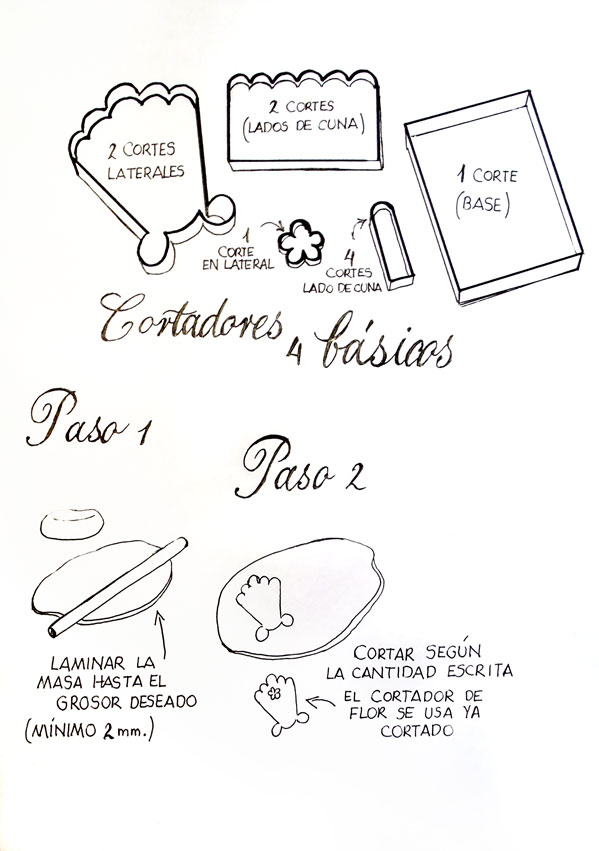 2 CORTES
LATERALES
2 CORTES
(LADOS DE CUNA)
1 CORTE
(BASE)
1
CORTE
EN LATERAL
4
CORTES
LADO DE CUNA
Cortadores 4 básicos
Paso 1
Paso 2
LAMINAR LA
MASA HASTA EL
GROSOR DESEADO
(MÍNIMO 2 mm.)
CORTAR SEGÚN
LA CANTIDAD ESCRITA
EL CORTADOR DE
FLOR SE USA YA
CORTADO